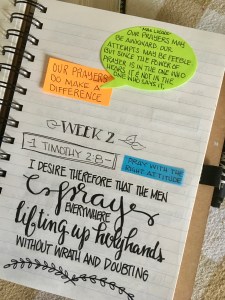 MAX LUCADO
OUR PRAYERS MAY
BE AWKWARD. OUR
ATTEMPTS MAY BE FEEBLE.
BUT SINCE THE POWER OF
PRAYER IS IN THE ONE WHO
HEARS IT & NOT IN THE
ONE WHO SAYS IT,
OUR PRAYERS
DO MAKE A
DIFFERENCE
WEEK 2
1 TIMOTHY 2:8
PRAY WITH THE
RIGHT ATTITUDE
I DESIRE THEREFORE THAT THE MEN
pray
EVERYWHERE
lifting up holy hands
WITHOUT WRATH AND DOUBTING